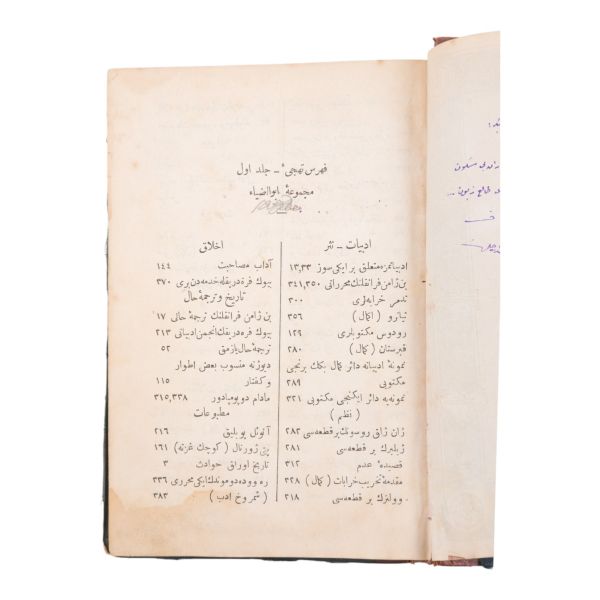 فهرس تهجیٔ ــ جلد اول
مجموعهٔ ابوالضیاء
ادبیات ــ نثر
ادبیاتمزه متعلق بر ایکی سوز ۱۳,۳۳
بن ژامن فرانقلنك محرراتی ۳۴۱,۳۵۰
تدمر خرابه‌لری ۳۰۰
تیاترو ( کمال ) ۳۵۶
رودوس مکتوبلری ۱۲۹
قبرستان ( کمال ) ۲۸۰
نمونهٔ ادبیاته دائر کمال بکك برنجی
مکتوبی ۲۸۹
نمونه‌یه دائر ایکنجی مکتوبی ۳۲۱
( نظم )
ژان ژاق روسونك بر قطعه‌سی ۲۸۲
ژیلبرك بر قطعه‌سی ۲۸۱
قصیدهٔ عدم ۳۱۲
مقدمهٔ تخریب خرابات ( کمال ) ۳۲۸
وولترك بر قطعه‌سی ۲۱۸
اخلاق
آداب مصاحبت ۱۴۴
بیوك فره‌دریقله خدمه‌دن بری ۳۷۰
تاریخ و ترجمهٔ حال
بن ژامن فرانقلنك ترجمهٔ حالی ۱۷
بیوك فره‌دریقك انجمن ادبیاتی ۲۱۳
ترجمهٔ حال یازمق ۵۲
دیوژنه منسوب بعض اطوار
و کفتار ۱۱۵
مادام دو پومپادور ۳۱۵,۳۳۸
مطبوعات
آنوئل پوبلیق ۲۱۶
پتی ژورنال ( کوچك غزته ) ۱۶۱
تاریخ اوراق حوادث ۳
ره‌وو ده دوموندك ایکی محرری ۳۳۶
( شمر و خ ادب ) ۳۸۳